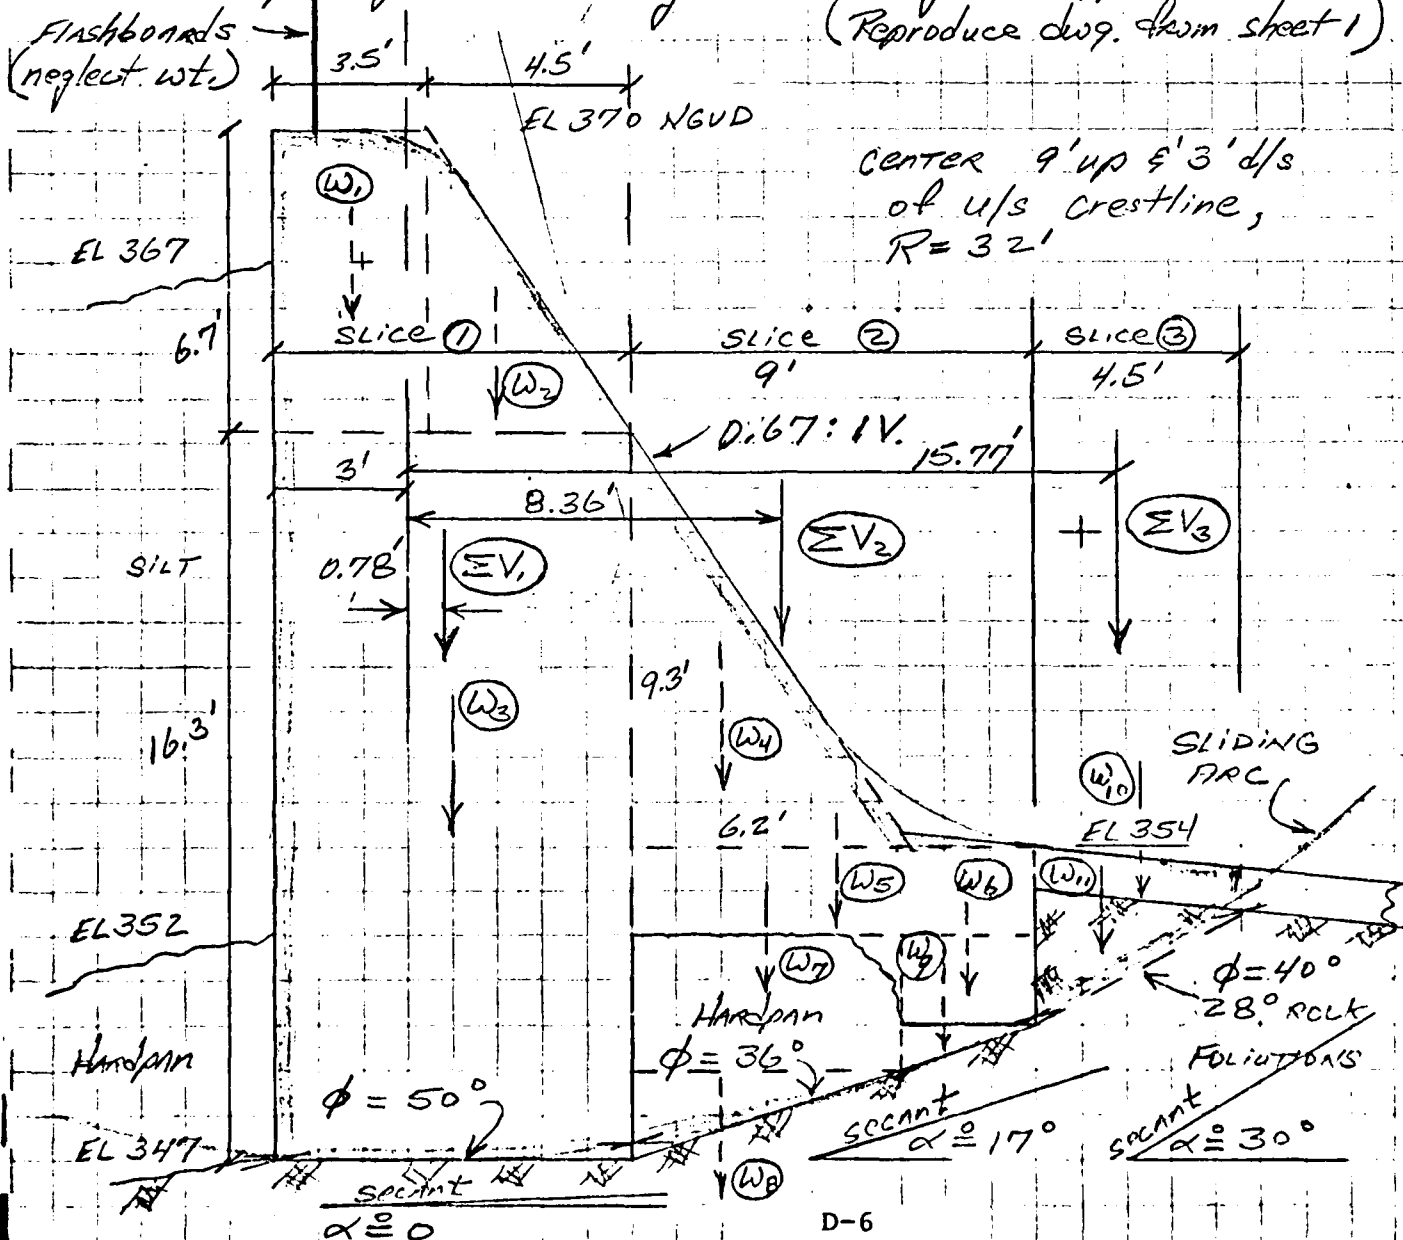 Flashboards
(neglect wt.)
(Reproduce dwg. from sheet 1)
3.5'
4.5'
EL 370 NGVD
CENTER 9' up & 3' d/s
of u/s crestline,
R = 32'
W1
EL 367
6.7'
SLICE 1
SLICE 2
9'
SLICE 3
4.5'
W2
0.67 : 1V.
15.77'
3'
8.36'
SILT
0.78'
ΣV1
ΣV2
ΣV3
9.3'
W3
16.3'
W4
SLIDING
ARC
W10
6.2'
EL 354
W5
W6
W11
EL 352
W7
W9
HARDPAN
φ = 36°
φ = 40°
28° ROCK
FOLIATIONS
HARDPAN
φ = 50°
secant
α ≐ 17°
secant
α ≐ 30°
EL 347
W8
secant
α ≐ 0
D-6